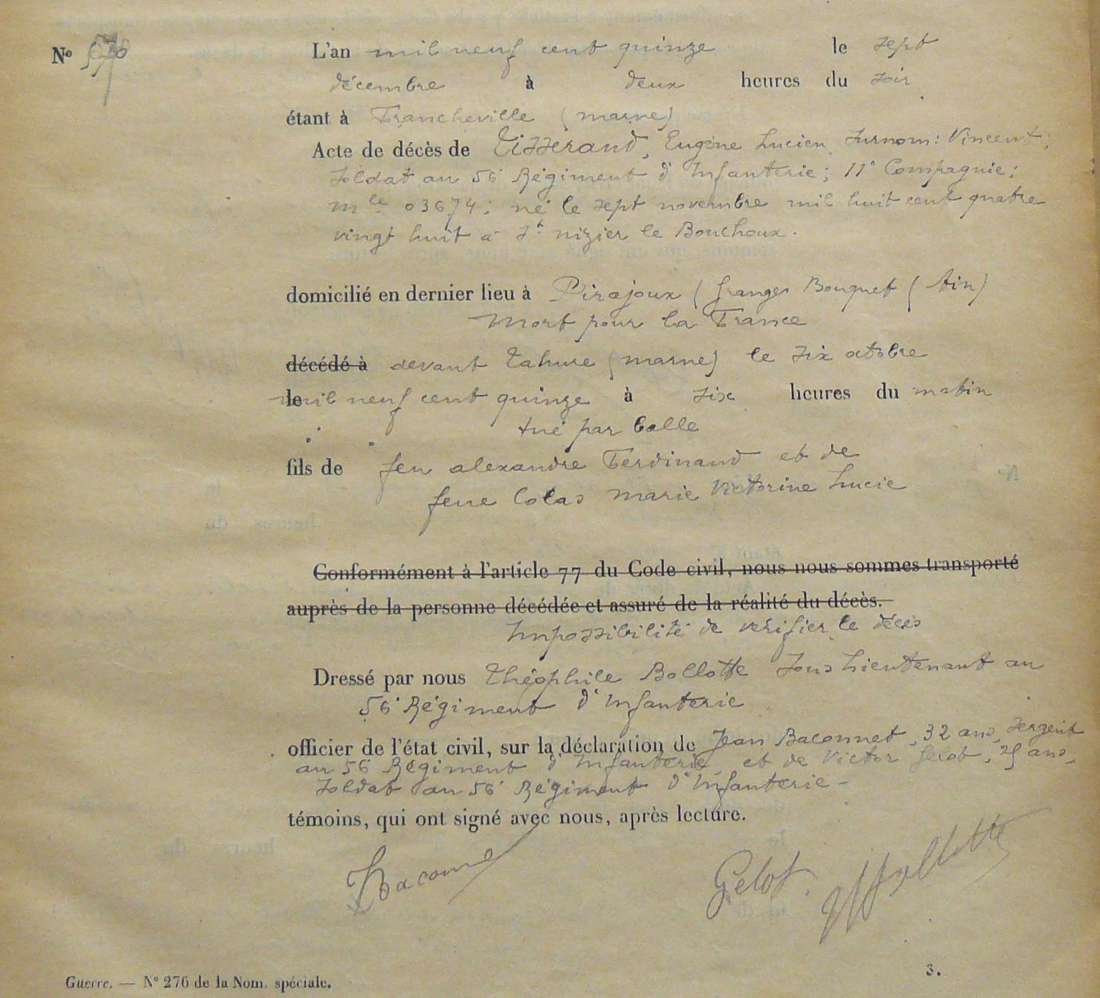 Nº
L'an mil neuf cent quinze le sept
décembre à deux heures du soir
étant à Francheville (marne)
Acte de décès de Tisserand, Eugène Lucien, surnom: Vincent;
soldat au 56 Régiment d'Infanterie; 11e Compagnie;
mle 03674; né le sept novembre mil huit cent quatre
vingt huit à St nizier le Bouchoux.
domicilié en dernier lieu à Pirajoux (granges Bouquet (Ain)
Mort pour la France
décédé à devant Tahure (marne) le six octobre
le mil neuf cent quinze à six heures du matin
tué par balle
fils de feu alexandre Ferdinand et de
feue Colas marie Victorine Lucie
Conformément à l'article 77 du Code civil, nous nous sommes transporté
auprès de la personne décédée et assuré de la réalité du décès.
Impossibilité de vérifier le décès
Dressé par nous Théophile Bollotte Sous Lieutenant au
56e Régiment d'Infanterie
officier de l'état civil, sur la déclaration de Jean Baconnet, 32 ans, sergent
au 56 Régiment d'Infanterie, et de Victor Gelot, 25 ans,
soldat au 56e Régiment d'Infanterie -
témoins, qui ont signé avec nous, après lecture.
Gelot
Guerre. — Nº 276 de la Nom. spéciale.
3.